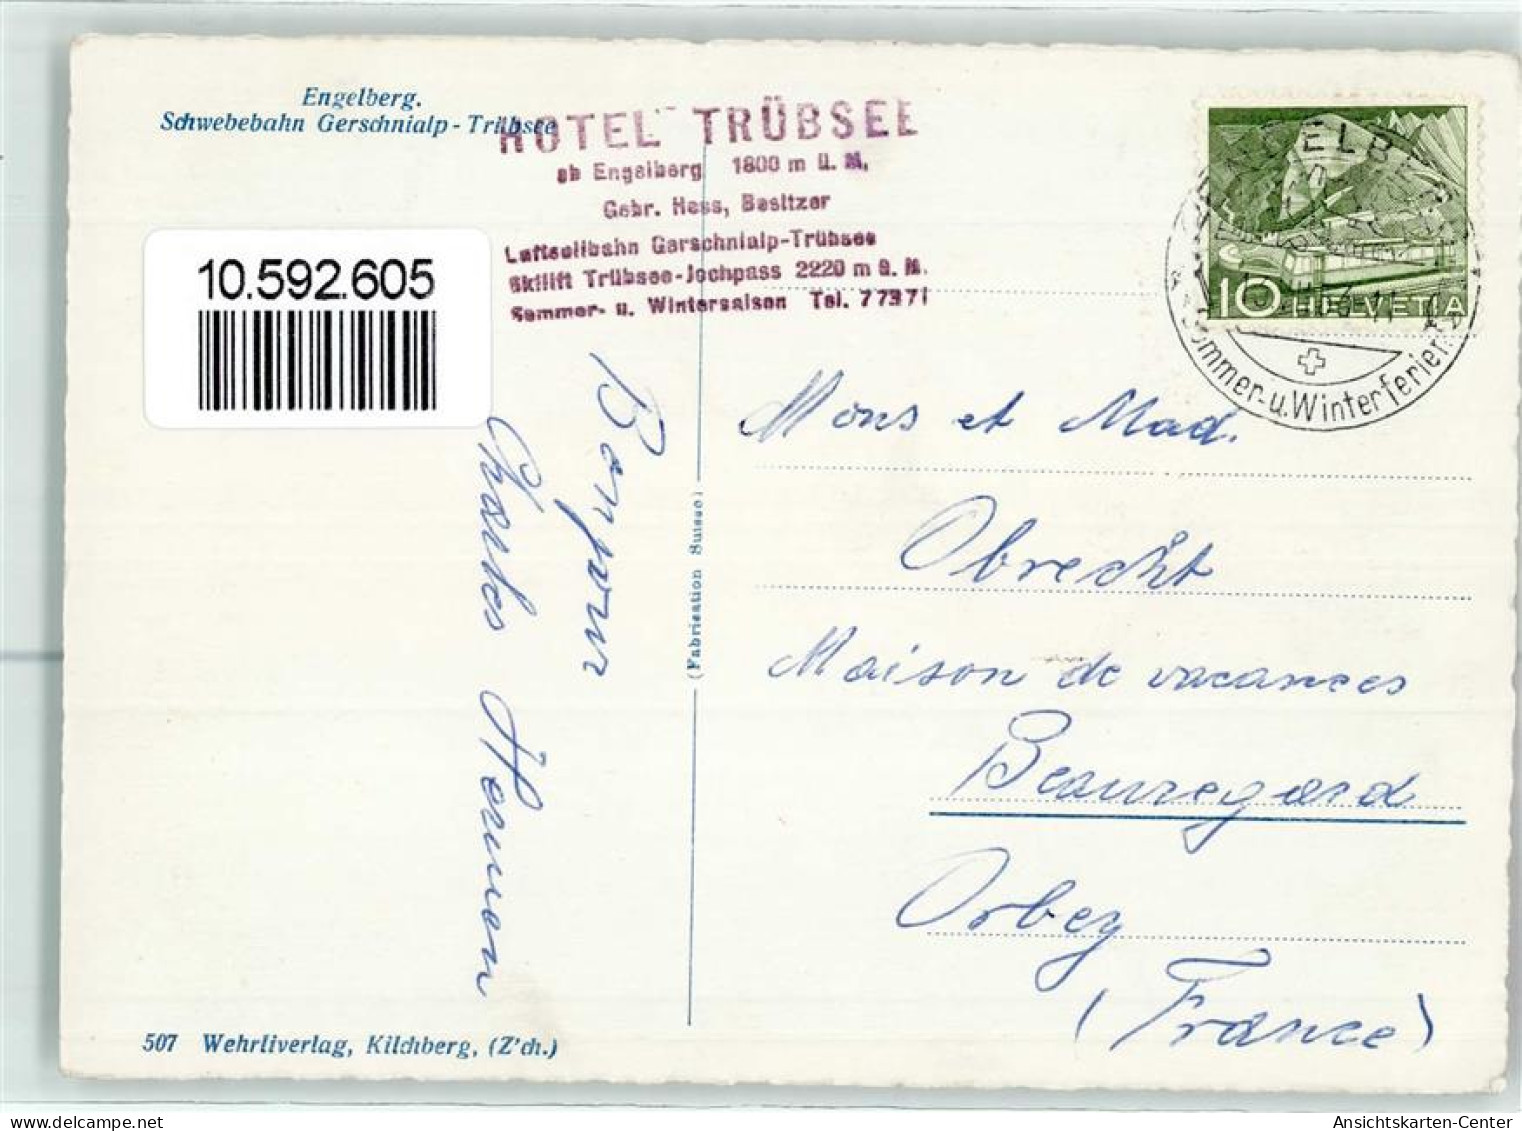 Engelberg.
Schwebebahn Gerschnialp - Trübsee
HOTEL TRÜBSEE
ab Engelberg 1800 m ü. M.
Gebr. Hess, Besitzer
Luftseilbahn Gerschnialp-Trübsee
Skilift Trübsee-Jochpass 2220 m ü. M.
Sommer- u. Wintersaison Tel. 77371
10.592.605
10 HELVETIA
ENGELBERG
Sommer- u. Winterferien
Bonjour
Charles
Mons et Mad.
Obrecht
Maison de vacances
Beauregard
Orbey
(France)
(Fabrication Suisse)
507 Wehrliverlag, Kilchberg, (Z'ch.)
Ansichtskarten-Center